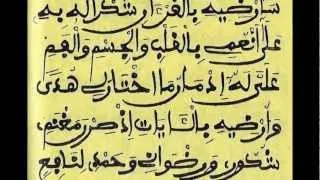 سَأُرْضِيهِ بِالْقُرْآنِ شُكْرًا لَهُ بِهِ
عَلَى أَنْعُمٍ بِالْقَلْبِ وَالْجِسْمِ وَالْفَمِ
عَلَيَّ لَهُ إِدْمَانُ مَا اخْتَارَ لِي هُدًى
وَأُرْضِيهِ بِالْآيَاتِ إِذْ مَغْنَمِ
شَكُورٍ وَرِضْوَانِي وَحَمْدِي لِنَافِعٍ